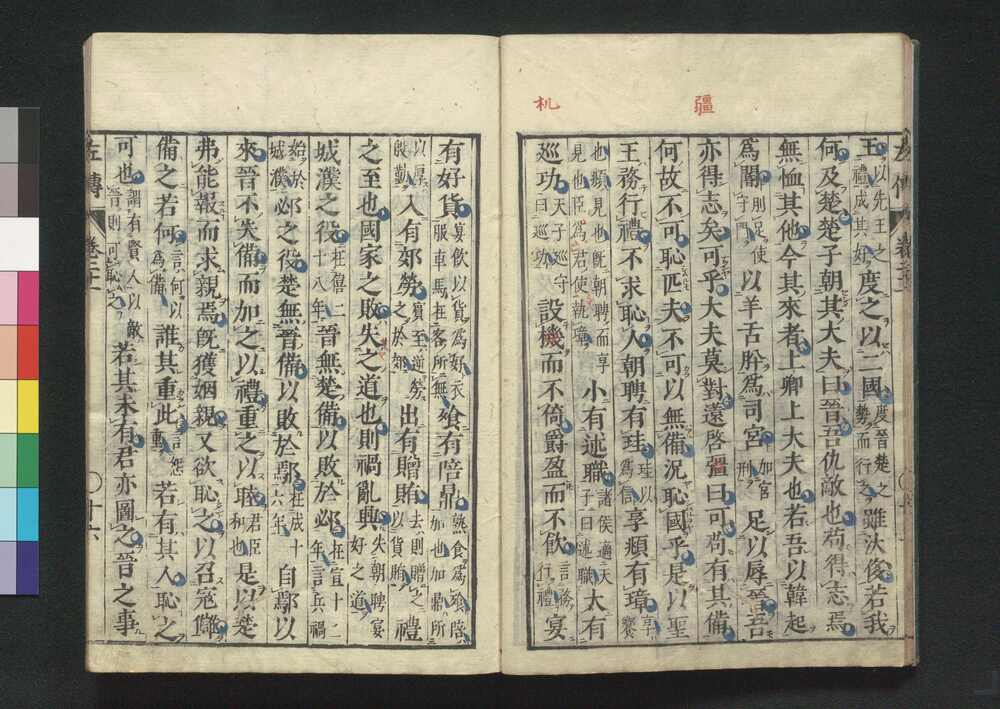 疆
机
王以先王之禮成其好度之以二國度晉楚之勢而行之雖汰侈若我
何及楚楚子朝其大夫曰晉吾仇敵也苟得志焉
無恤其他今其來者上卿上大夫也若吾以韓起
爲閽刖足使守門以羊舌肸爲司宮加宮刑足以辱晉吾
亦得志矣可乎大夫莫對薳啓彊曰可苟有其備
何故不可恥匹夫不可以無備況恥國乎是以聖
王務行禮不求恥人朝聘有珪珪以爲信享覜有璋享饗
也覜見也旣朝聘而享見也臣爲君使執璋小有述職諸侯適天子曰述職大有
巡功天子巡守曰巡功設機而不倚爵盈而不飮言務行禮宴
有好貨宴飮以貨爲好衣服車馬在客所無飧有陪鼎熟食爲飧陪加也加鼎所
以厚殷勤入有郊勞賓至逆勞之於郊出有贈賄去則贈之以貨賄禮
之至也國家之敗失之道也則禍亂興失朝聘宴好之道
城濮之役在僖二十八年晉無楚備以敗於邲在宣十二年言兵禍
始於城濮邲之役楚無晉備以敗於鄢在成十六年自鄢以
來晉不失備而加之以禮重之以睦君臣和也是以楚
弗能報而求親焉旣獲姻親又欲恥之以召寇讎
備之若何言何以爲備誰其重此言怨重若有其人恥之
可也謂有賢人以敵晉則可恥之若其未有君亦圖之晉之事
左傳 卷二十一 〇 十六